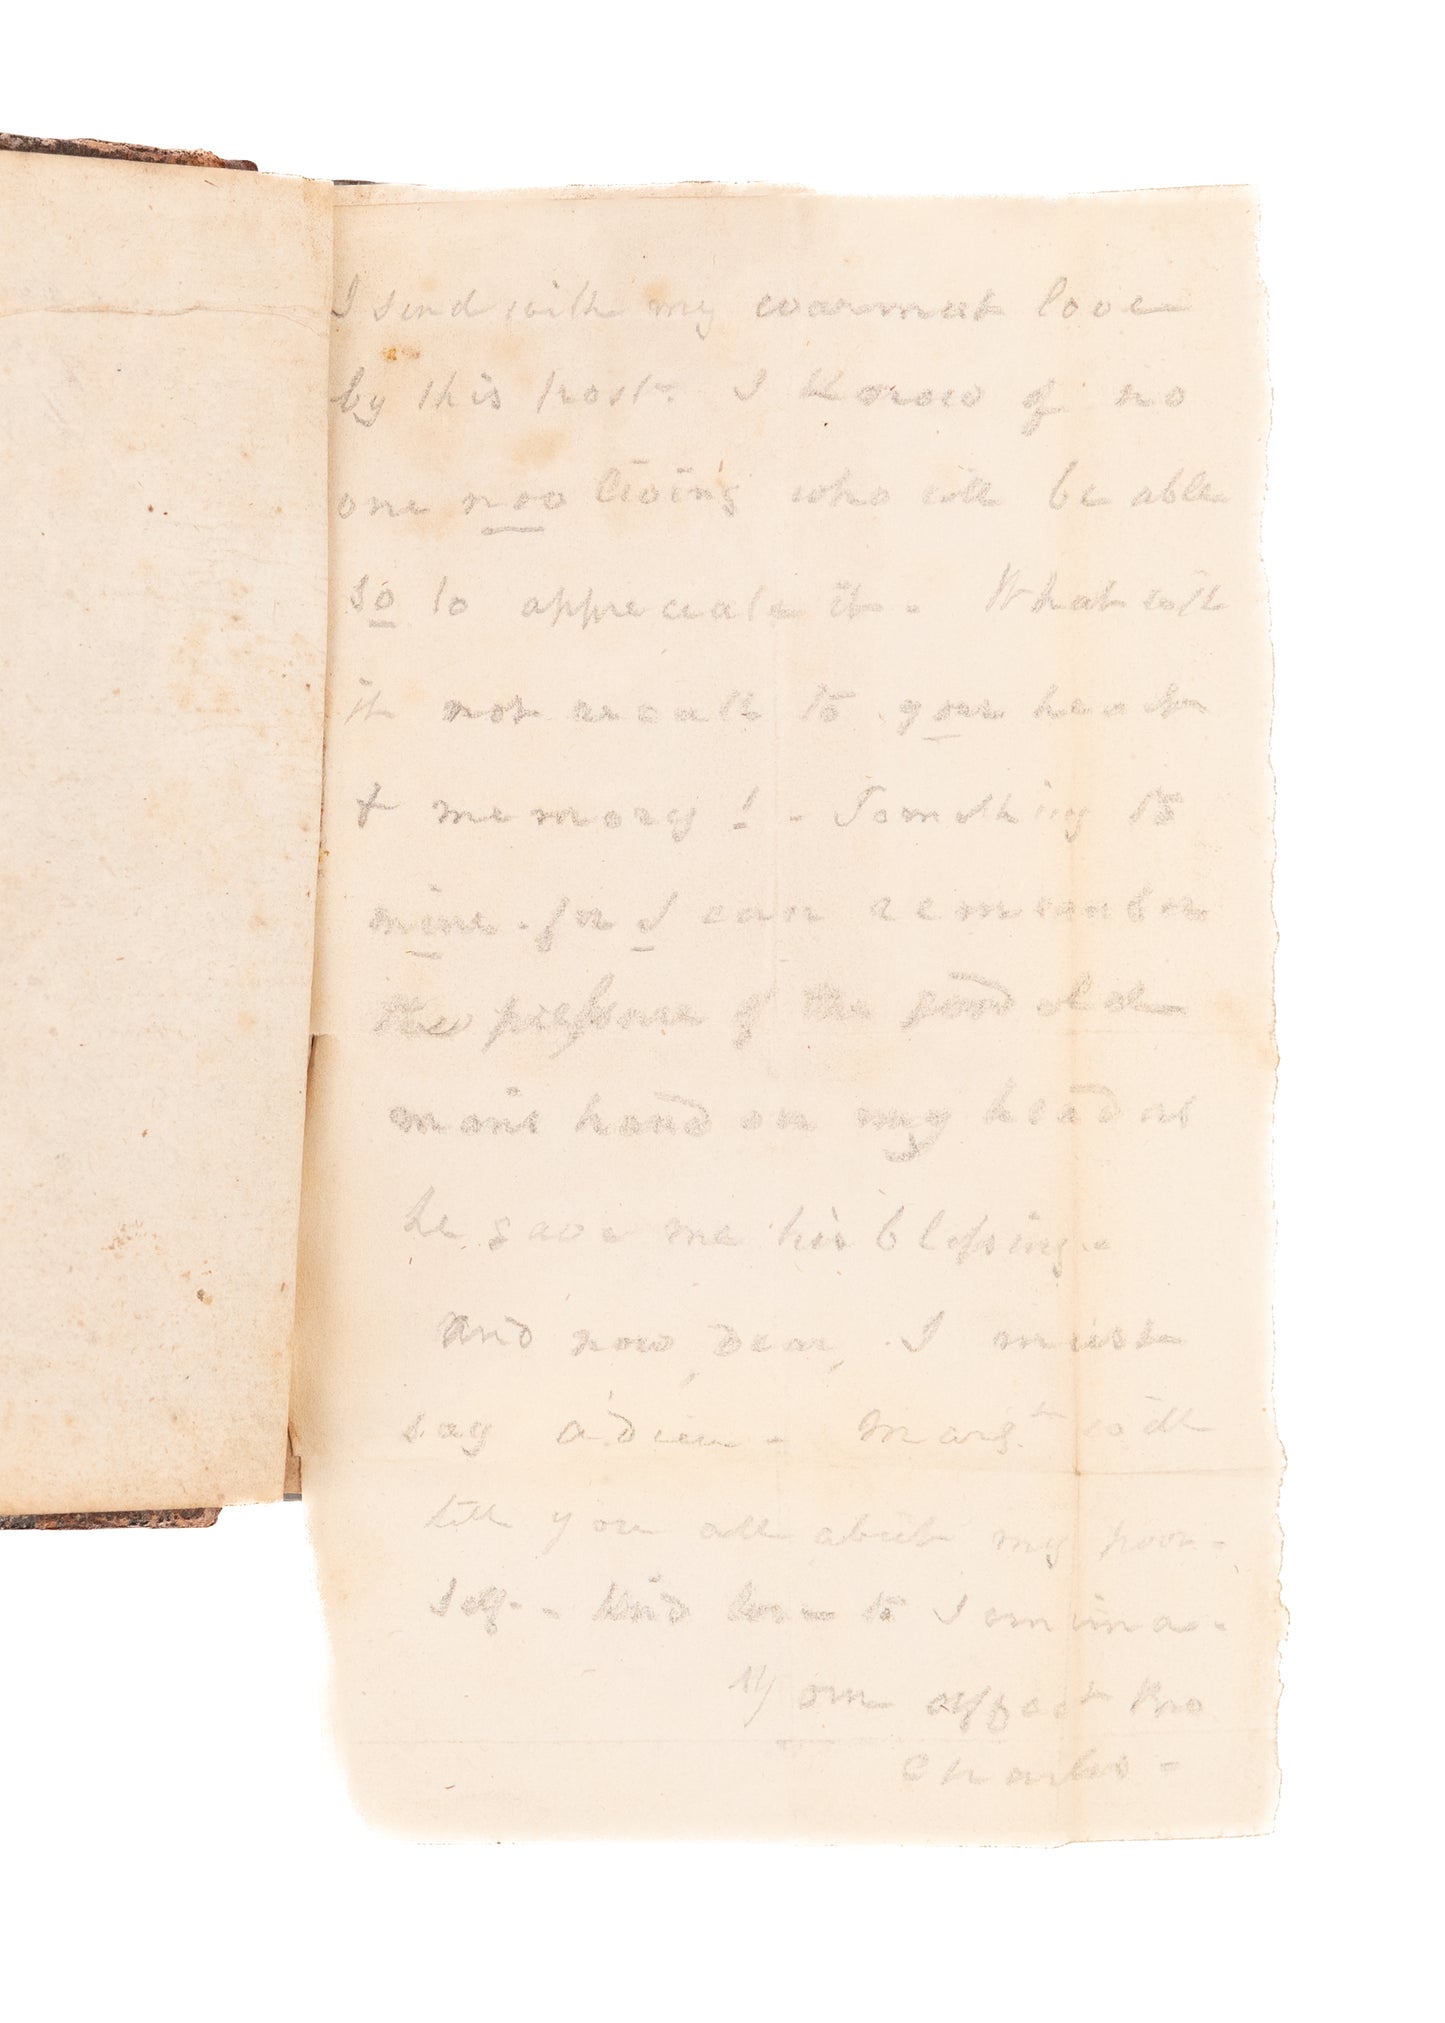 I send with my warmest love
by this post. I know of no
one now living who will be able
so to appreciate it - What will
it not recall to your heart
& memory! - Something to
mine - for I can remember
the preſsure of the good old
man's hand on my head as
he gave me his bleſsing -
And now, dear, I must
say adieu - Margt will
tell you all about my poor -
self - Kind love to Jemima -
Your affect Bro
Charles -